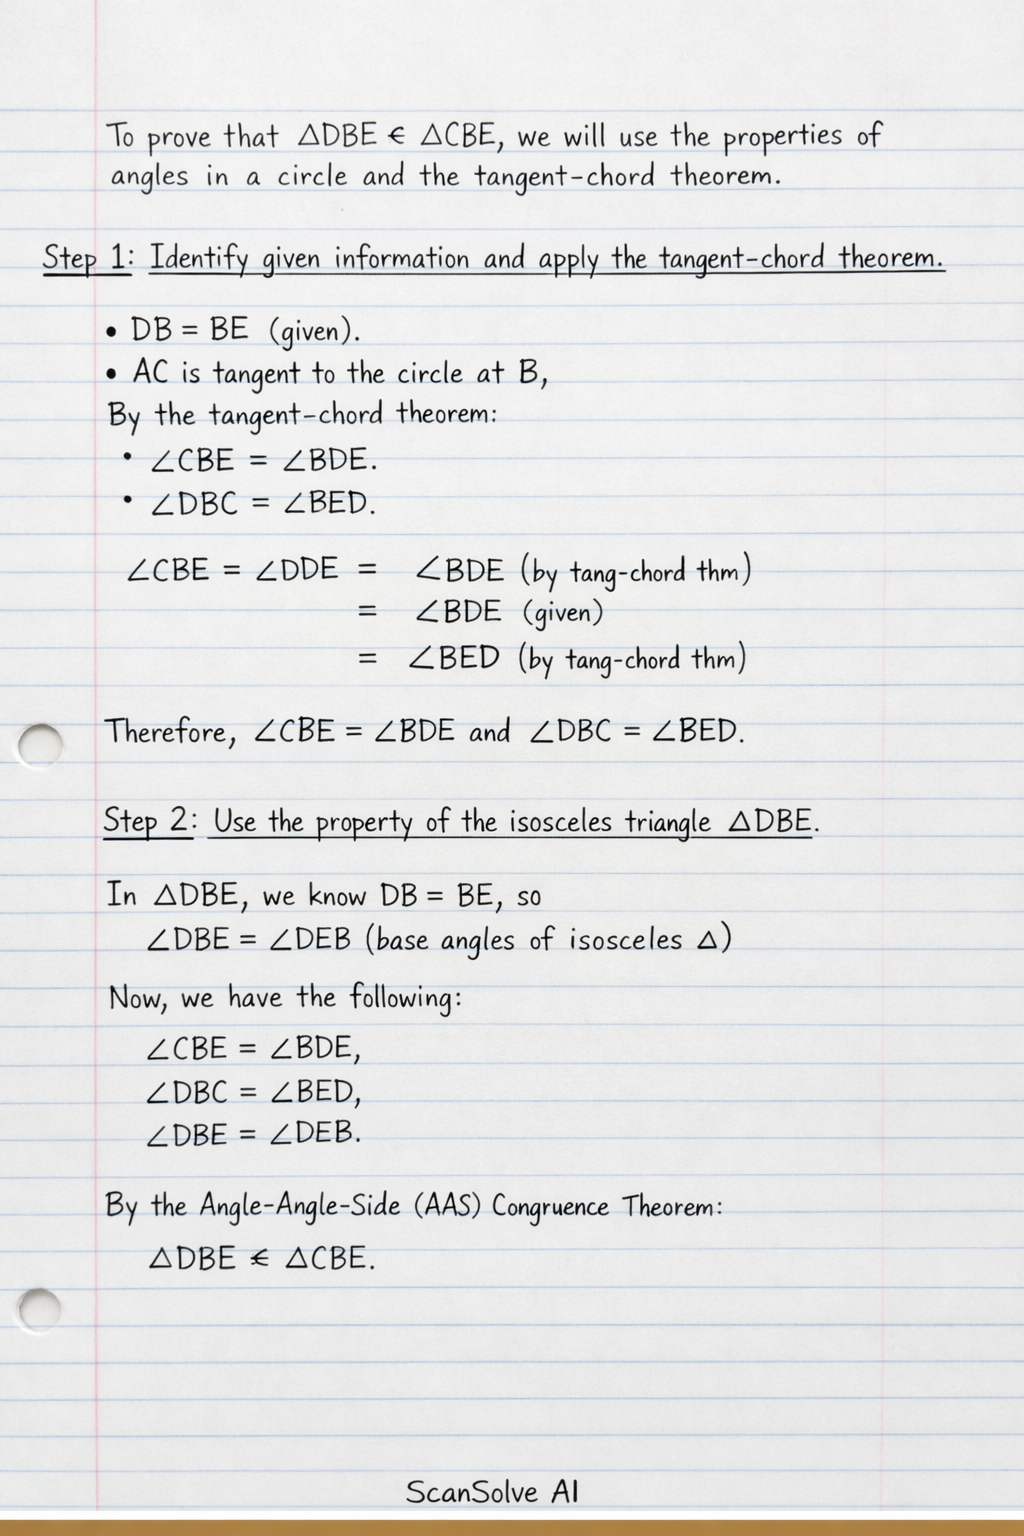 To prove that △DBE € △CBE, we will use the properties of
angles in a circle and the tangent-chord theorem.
Step 1: Identify given information and apply the tangent-chord theorem.
• DB = BE (given).
• AC is tangent to the circle at B,
By the tangent-chord theorem:
• ∠CBE = ∠BDE.
• ∠DBC = ∠BED.
∠CBE = ∠DDE = ∠BDE (by tang-chord thm)
= ∠BDE (given)
= ∠BED (by tang-chord thm)
Therefore, ∠CBE = ∠BDE and ∠DBC = ∠BED.
Step 2: Use the property of the isosceles triangle △DBE.
In △DBE, we know DB = BE, so
∠DBE = ∠DEB (base angles of isosceles △)
Now, we have the following:
∠CBE = ∠BDE,
∠DBC = ∠BED,
∠DBE = ∠DEB.
By the Angle-Angle-Side (AAS) Congruence Theorem:
△DBE € △CBE.
ScanSolve AI